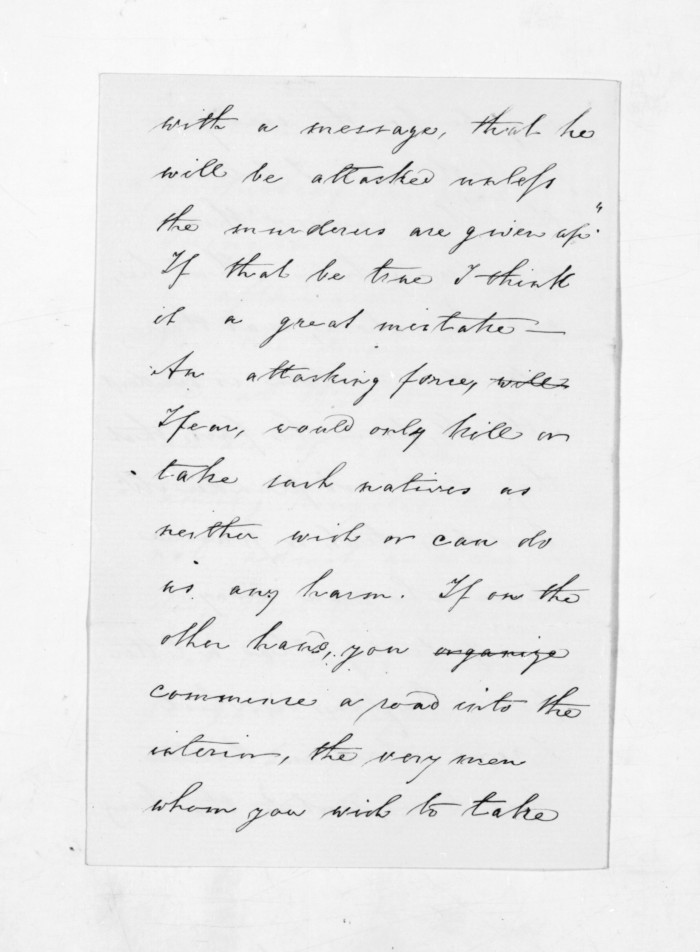 with a message, that he
will be attacked unless
the murderers are given up"
If that be true I think
it a great mistake —
An attacking force, will
I fear, would only kill or
take such natives as
neither wish or can do
us any harm. If on the
other hand, you organize
commence a road into the
interior, the very men
whom you wish to take